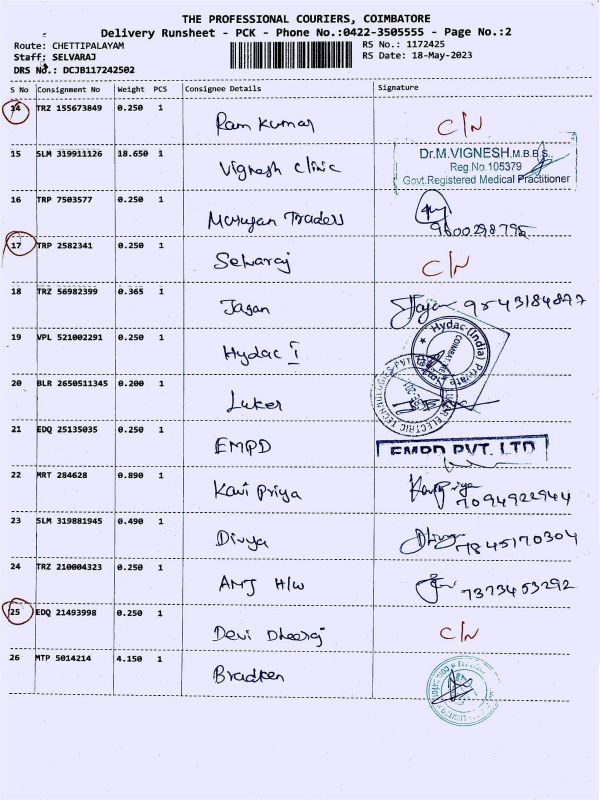 THE PROFESSIONAL COURIERS, COIMBATORE
Delivery Runsheet - PCK - Phone No.:0422-3505555 - Page No.:2
Route: CHETTIPALAYAM RS No.: 1172425
Staff: SELVARAJ RS Date: 18-May-2023
DRS No.: DCJB117242502
S No Consignment No Weight PCS Consignee Details Signature
14 TRZ 155673849 0.250 1
Ram Kumar C/N
15 SLM 319911126 18.650 1
Vignesh Clinic
Dr.M.VIGNESH,M.B.B.S.,
Reg.No.105379
Govt.Registered Medical Practitioner
16 TRP 7503577 0.250 1
Murugan Traders
17 TRP 2582341 0.250 1
Selvaraj C/N
18 TRZ 56982399 0.365 1
Jagan
19 VPL 521002291 0.250 1
Hydac I
Hydac (India) Private
20 BLR 2650511345 0.200 1
Luker
ELECTRIC TECHNOLOGIES PVT
21 EDQ 25135035 0.250 1
EMPD
EMPD PVT. LTD
22 MRT 284628 0.890 1
Kavi Priya
7094922944
23 SLM 319881945 0.490 1
Divya
7845170304
24 TRZ 210004323 0.250 1
AMJ H/W
7373453292
25 EDQ 21493998 0.250 1
Devi Dheeraj C/N
26 MTP 5014214 4.150 1
Bradken